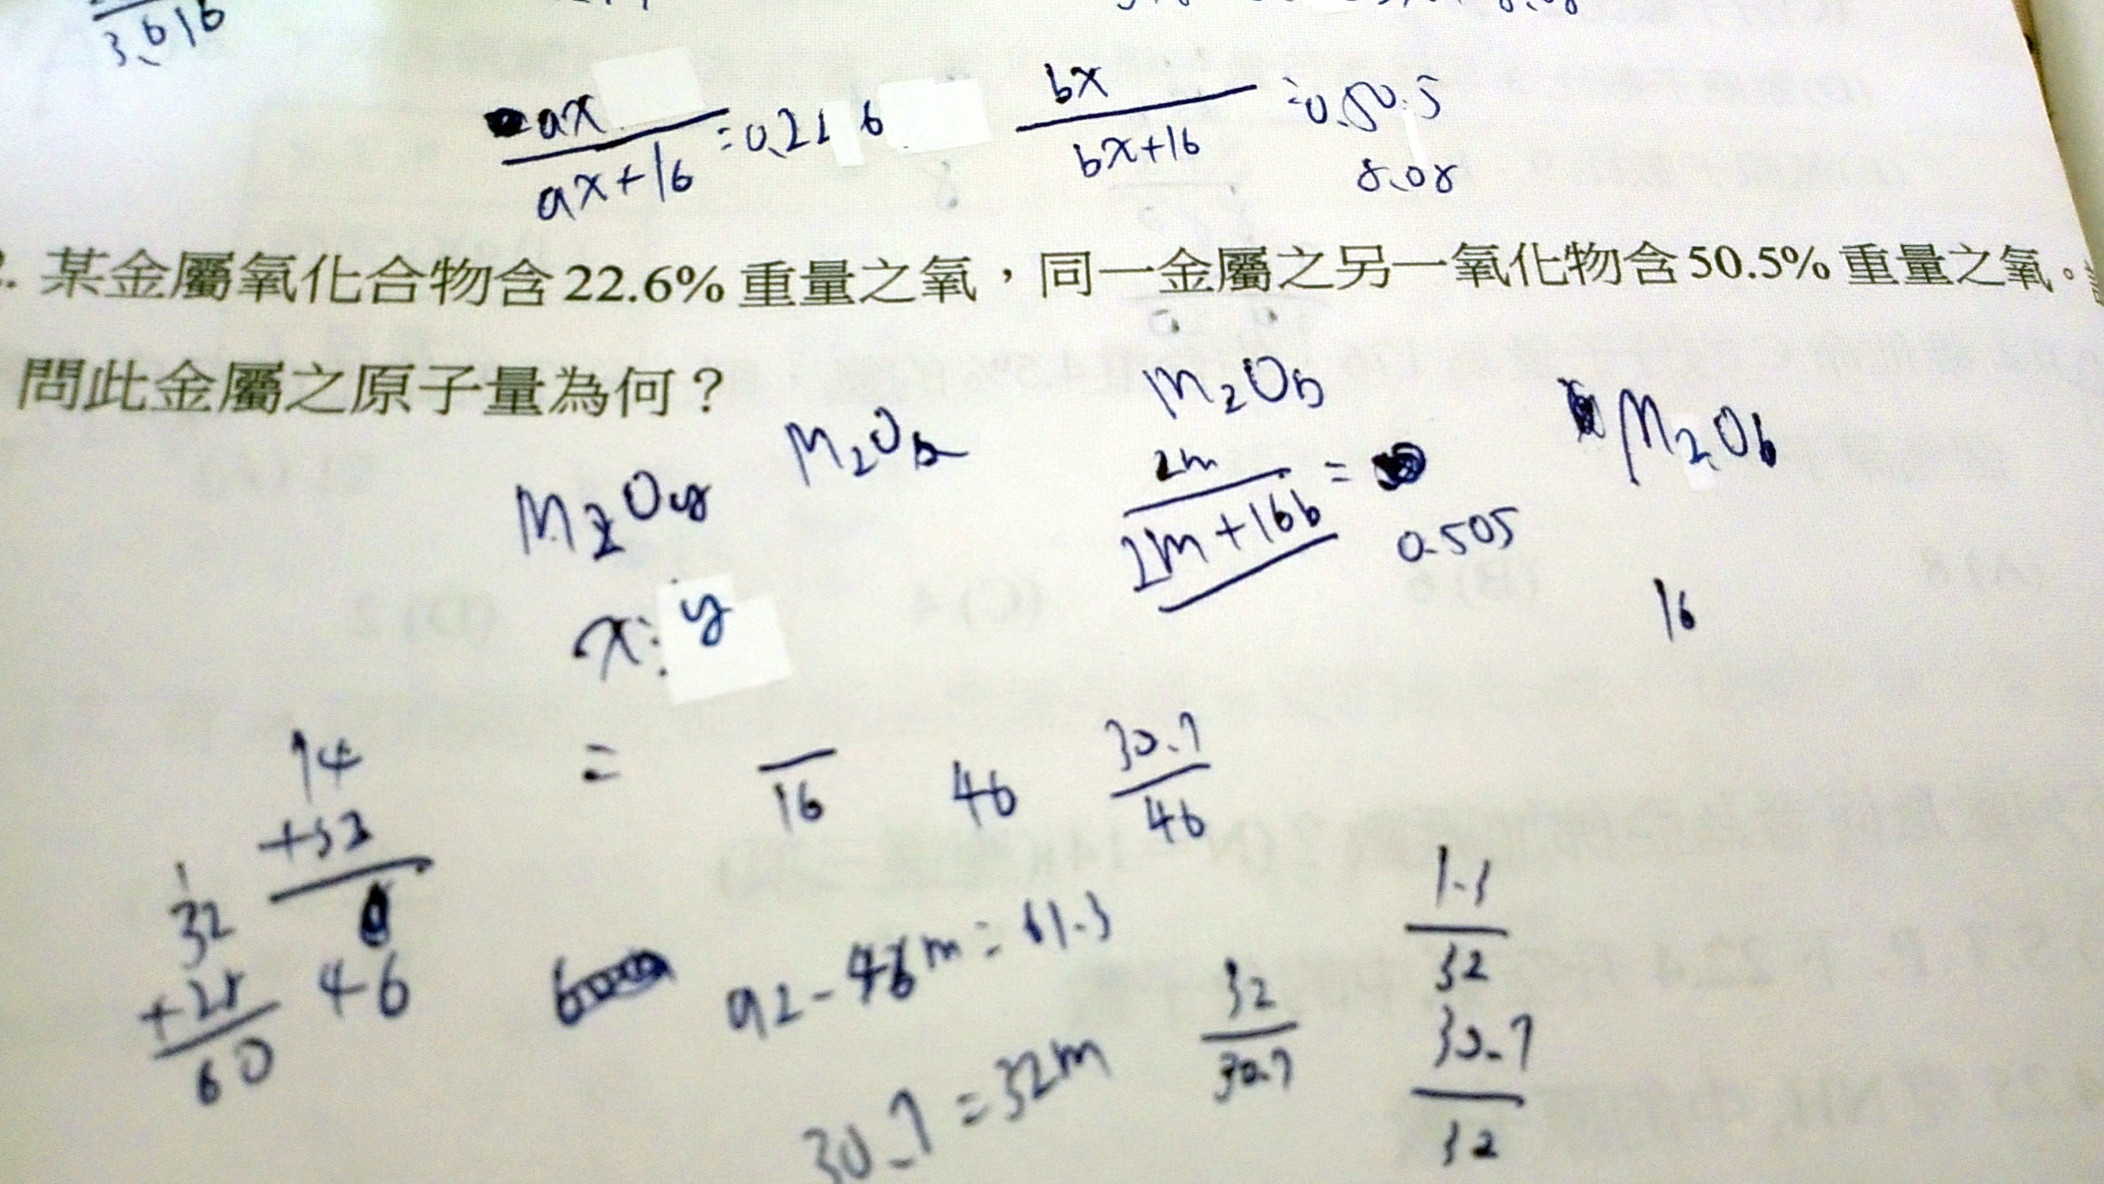 3.616
ax / ax+16 = 0.226
bx / bx+16 = 0.50.5
8.08
. 某金屬氧化合物含22.6%重量之氧，同一金屬之另一氧化物含50.5%重量之氧。
問此金屬之原子量為何？
M₂Oy
M₂Ob
M₂Ob
x:y
2m / 2m+16b =
0.505
16
=
/ 16
46
30.7 / 46
14
+32
46
32
+28
60
92-46m=61.3
30.7=32m
32 / 30.7
1.3 / 32
30.7 / 32